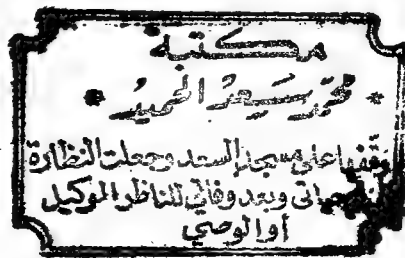 مكتبة
محمد سعيد الحميد
وقفها على مسجد السعد وجعلت النظارة
في حياتي وبعد وفاتي للناظر الموكيل
أو الوصي